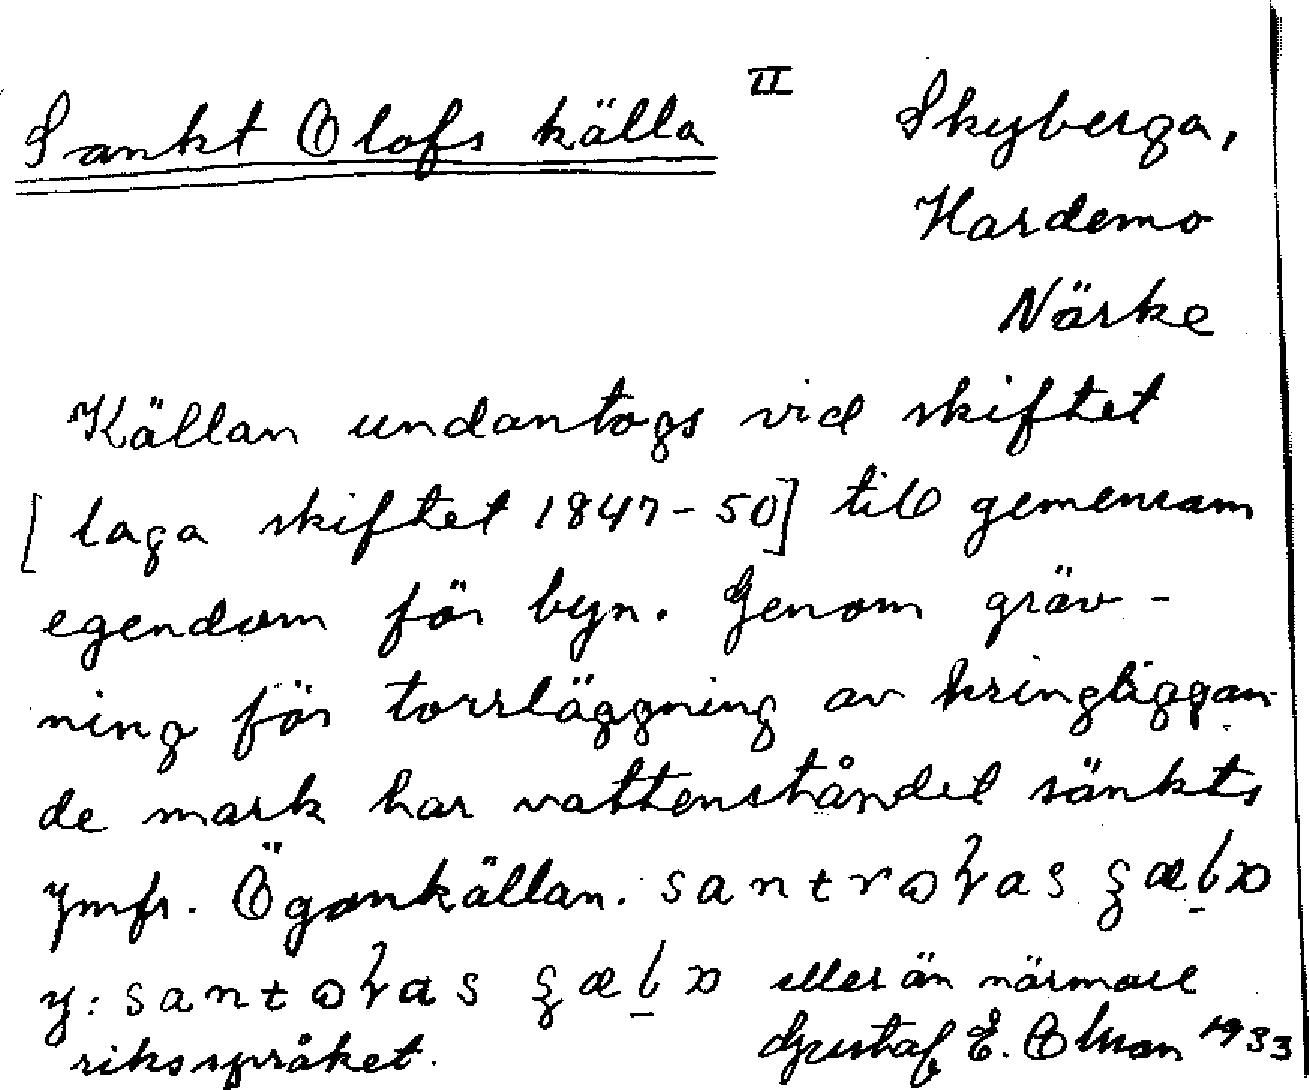 Sankt Olofs källa II Skyberga,
Hardemo
Närke
Källan undantogs vid skiftet
[laga skiftet 1847-50] till gemensam
egendom för byn. Genom gräv-
ning för torrläggning av kringliggan
de mark har vattenståndet sänkts
Jmfr. Ögonkällan.
y: eller än närmare
riksspråket. Gustaf E. Olson 1933